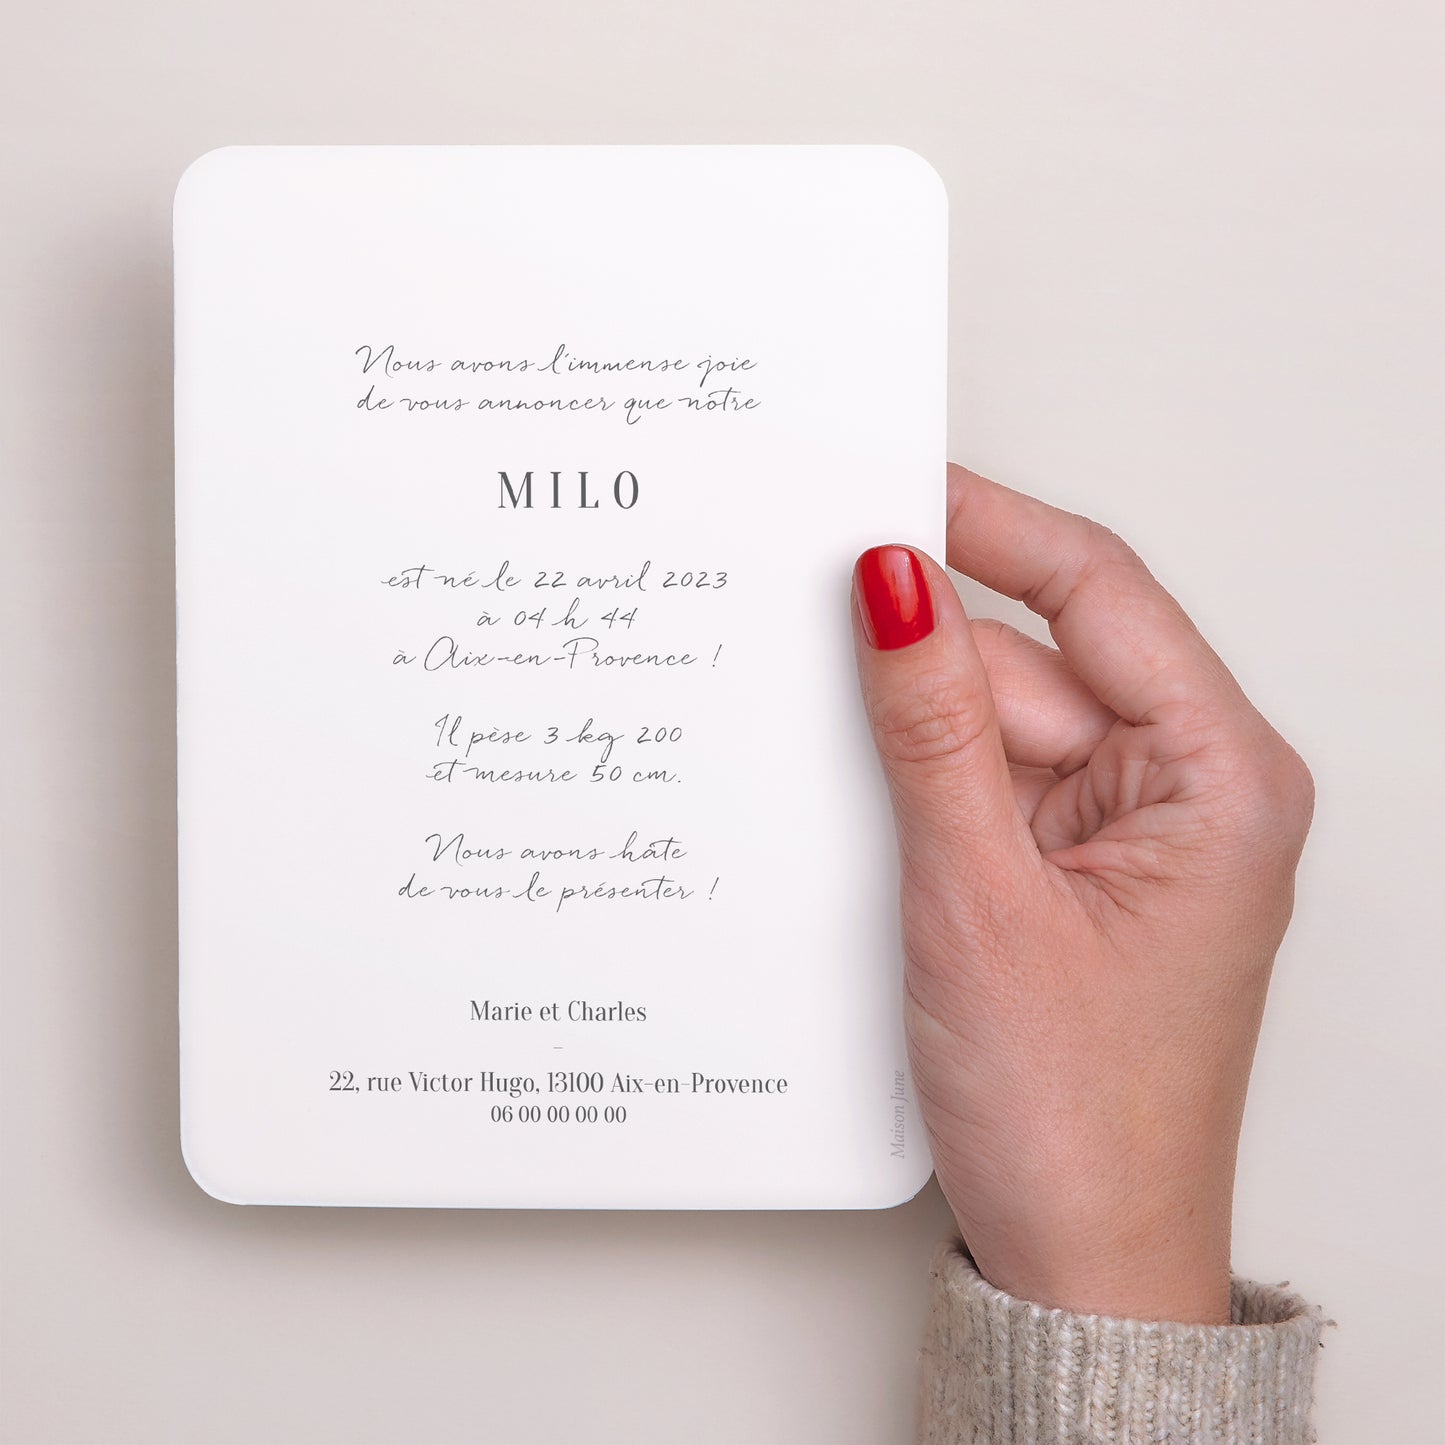 Nous avons l'immense joie
de vous annoncer que notre
MILO
est né le 22 avril 2023
à 04 h 44
à Aix-en-Provence !
Il pèse 3 kg 200
et mesure 50 cm.
Nous avons hâte
de vous le présenter !
Marie et Charles
–
22, rue Victor Hugo, 13100 Aix-en-Provence
06 00 00 00 00
Maison June